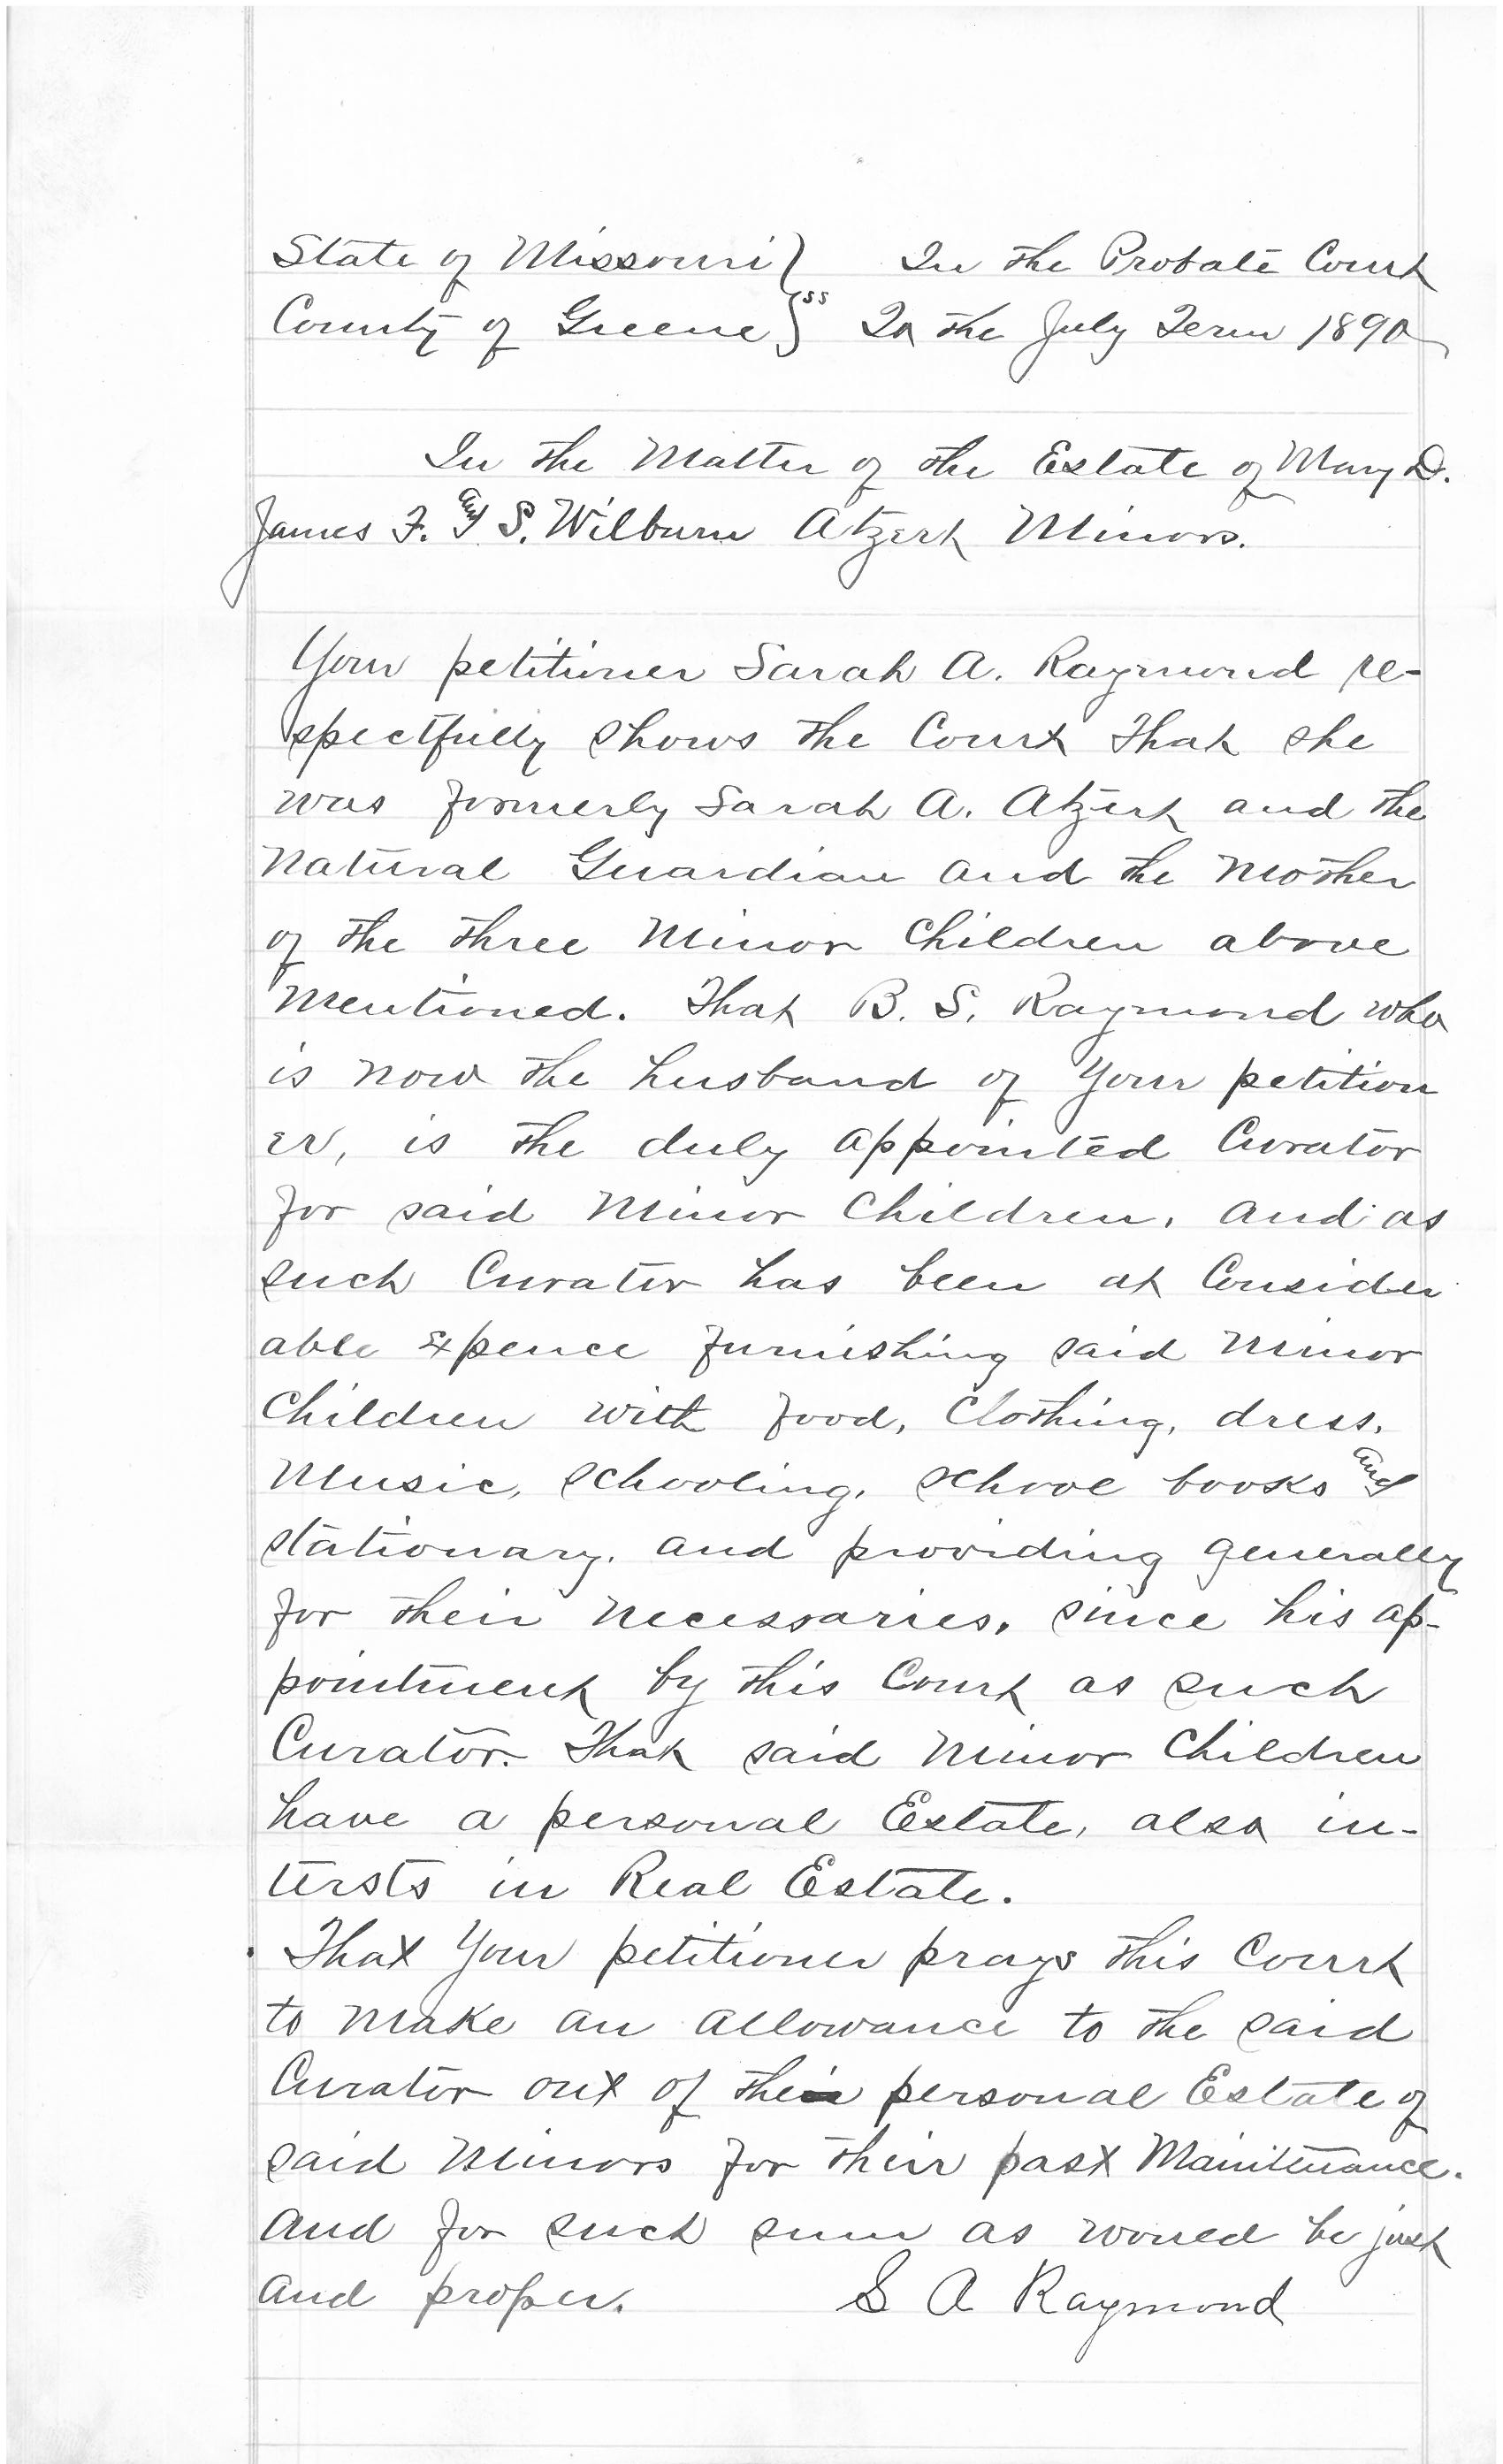 State of Missouri } In the Probate Court
County of Greene } ss To the July Term 1890
In the Matter of the Estate of Mary D.
James F. and S. Wilburn Atzert Minors.
Your petitioner Sarah A. Raymond re-
spectfully shows the Court That she
was formerly Sarah A. Atzert and the
Natural Guardian and the Mother
of the three Minor Children above
Mentioned. That B. S. Raymond who
is now the husband of Your petition
er, is the duly appointed Curator
for said Minor Children, and as
such Curator has been at Consider
able Expence furnishing said Minor
Children with food, Clothing, dress,
Music, Schooling, School books and
stationary, and providing generally
for their Necessaries, since his ap-
pointment by this Court as such
Curator. That said Minor Children
have a personal Estate, also in-
tersts in Real Estate.
That Your petitioner prays this Court
to Make an Allowance to the said
Curator out of the personal Estate of
said Minors for their past Maintenance.
And for such sum as would be just
and proper. S A Raymond